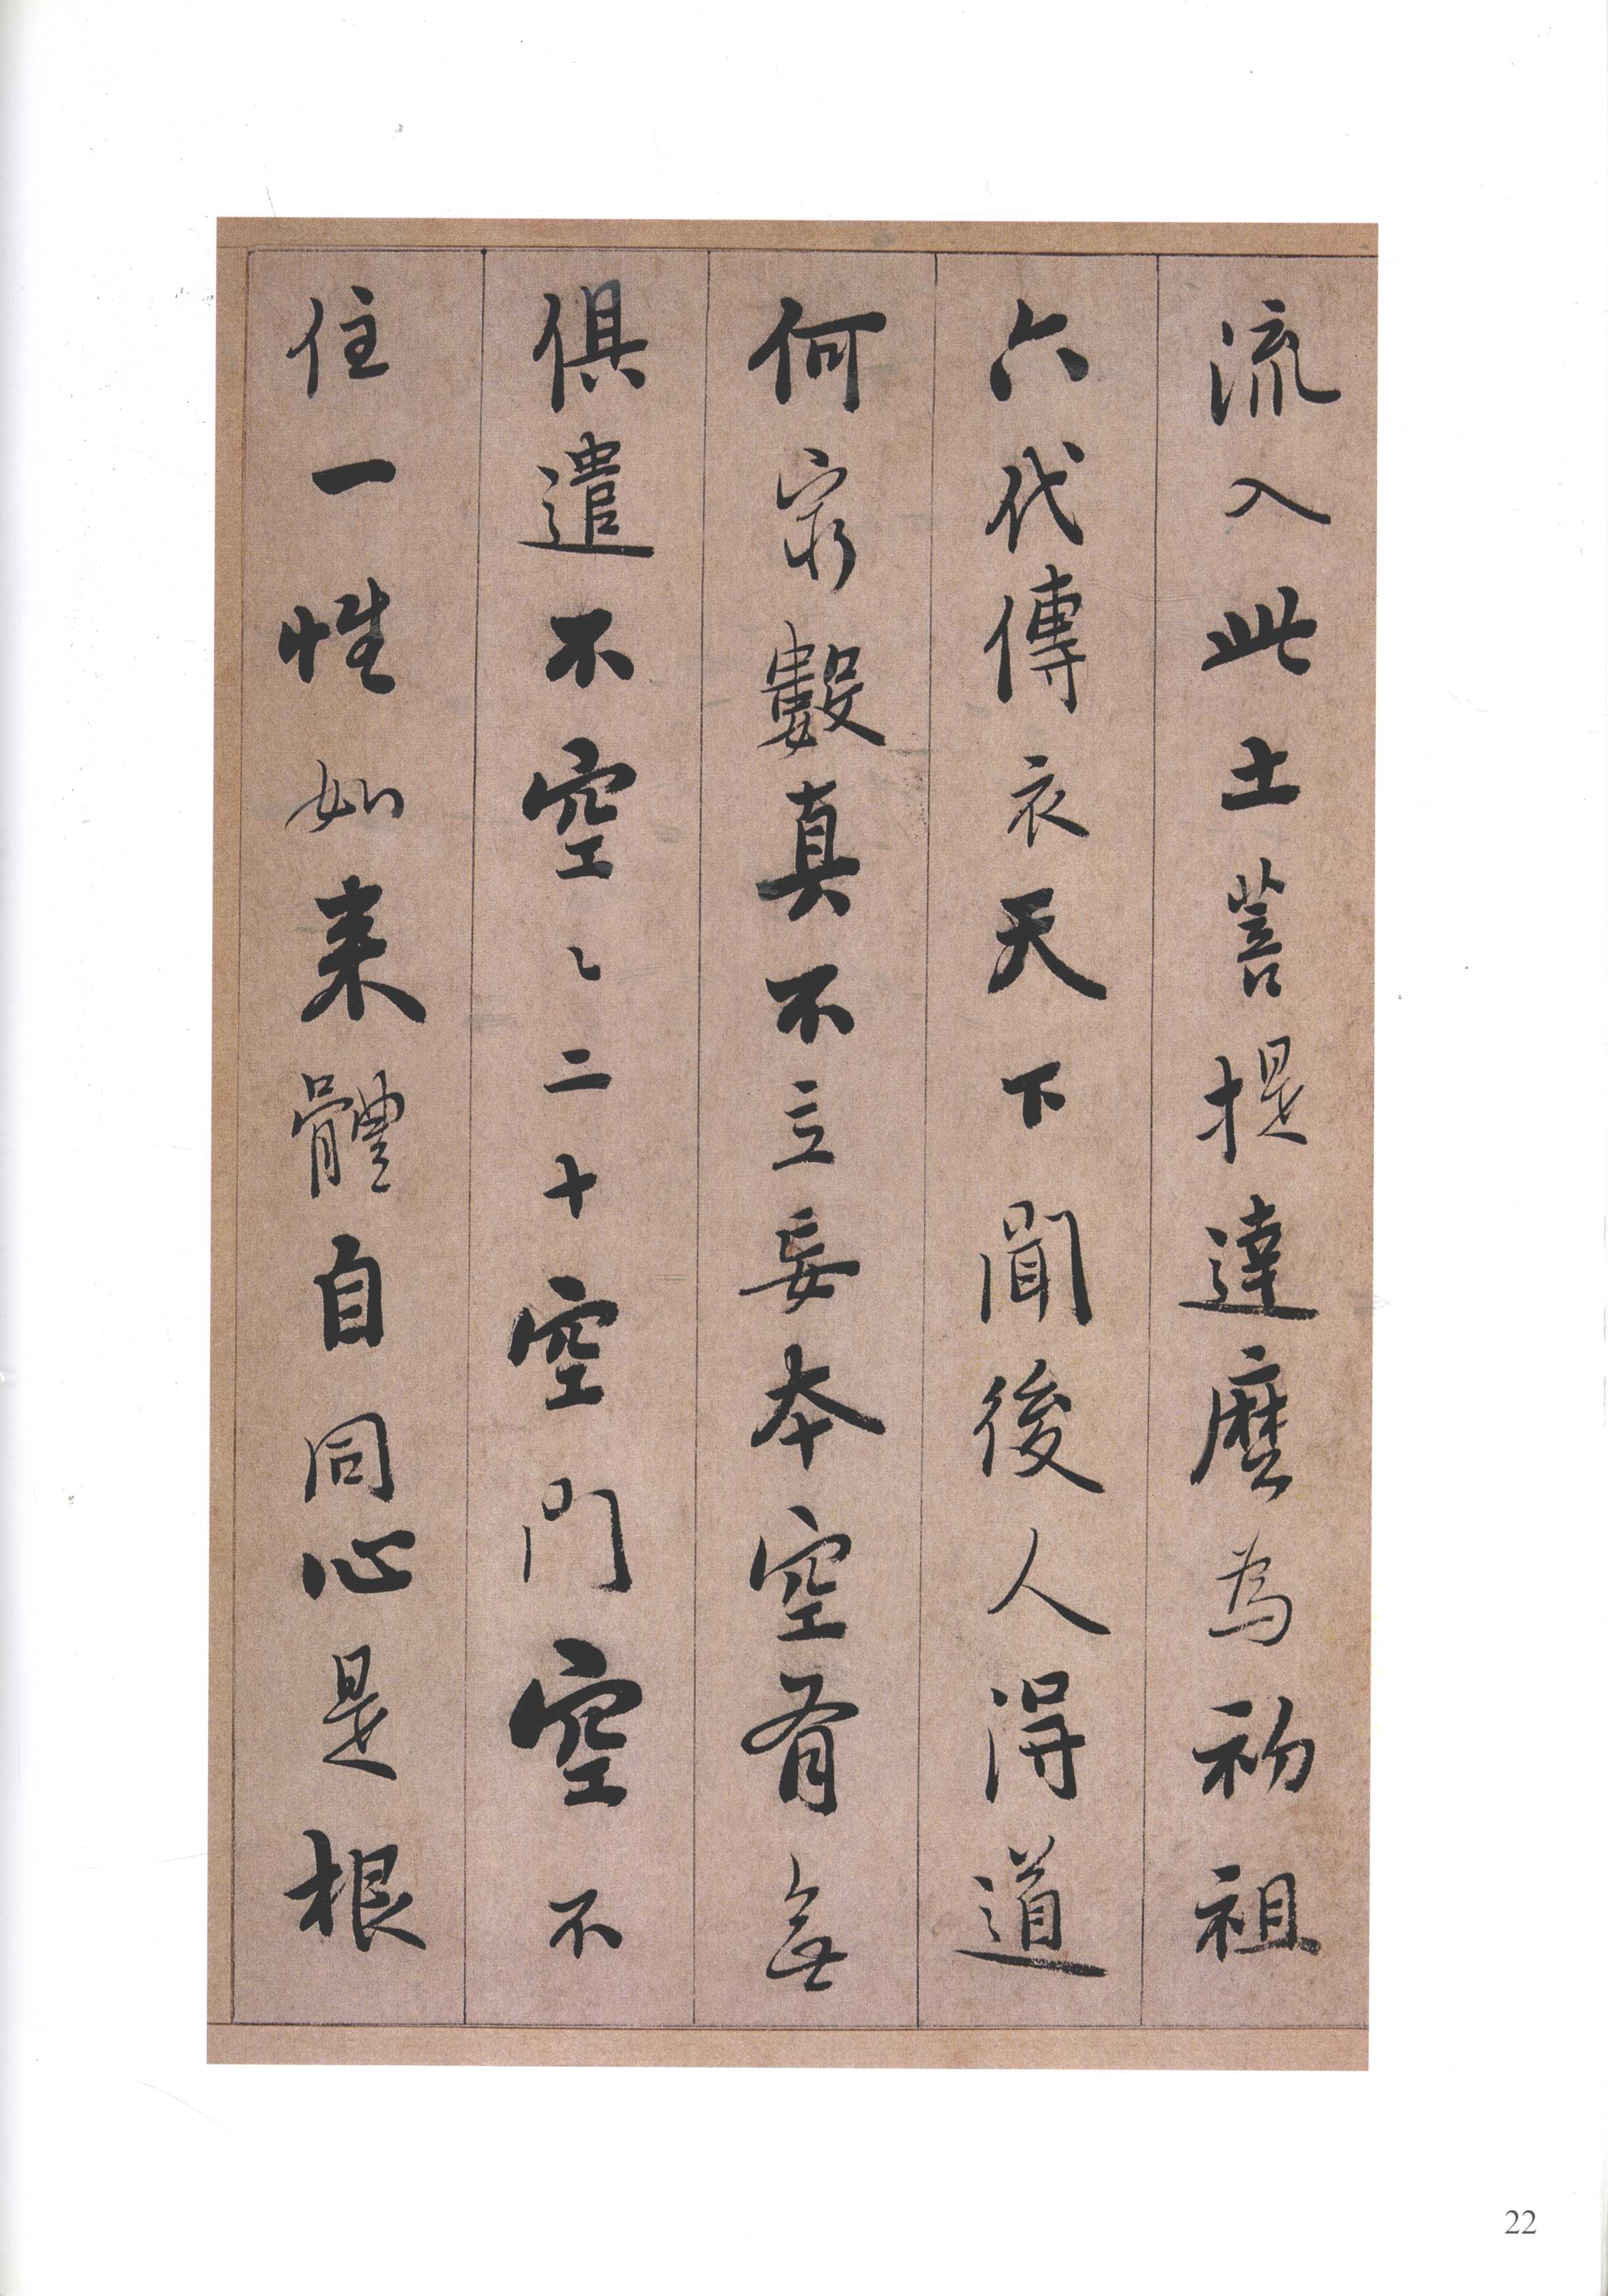 流入此土菩提達磨為初祖
六代傳衣天下聞後人得道
何窮數真不立妄本空有無
俱遣不空〻二十空門空不
住一性如来體自同心是根
22